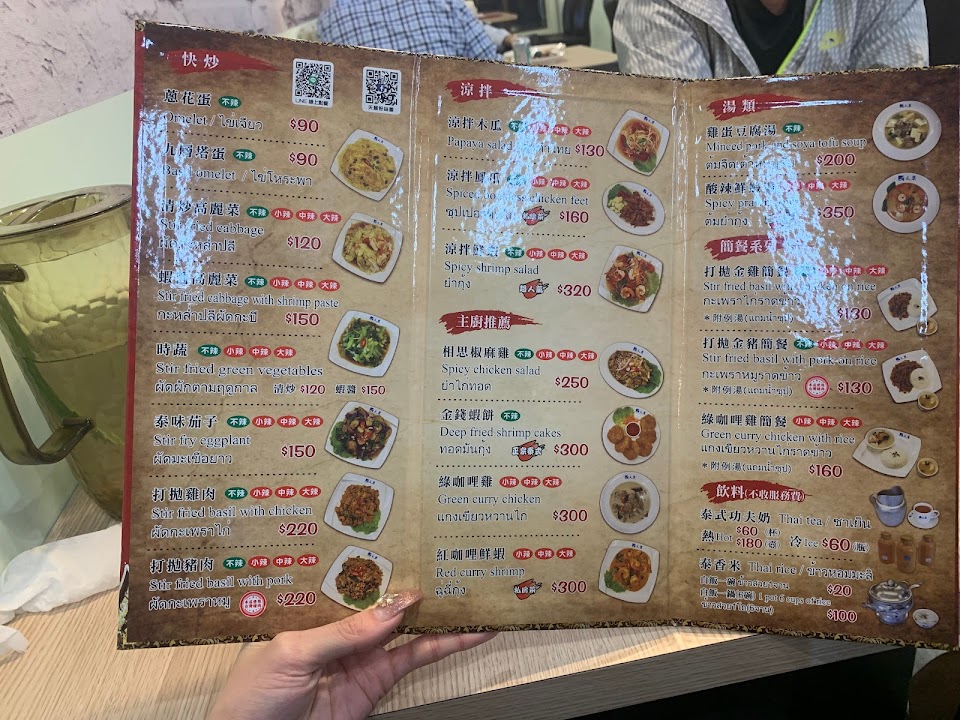 快炒
LINE 線上點餐
蔥花蛋 不辣
Omelet / ไข่เจียว $90
九層塔蛋 不辣
Basil omelet / ไข่โหระพา $90
清炒高麗菜 不辣 小辣 中辣 大辣
Stir fried cabbage $120
高麗菜 不辣 小辣 中辣 大辣
Stir fried cabbage with shrimp paste
กะหล่ำปลีผัดกะปิ $150
時蔬 不辣 小辣 中辣 大辣
Stir fried green vegetables
ผัดผักตามฤดูกาล 清炒 $120 蝦醬 $150
泰味茄子 不辣 小辣 中辣 大辣
Stir fry eggplant
ผัดมะเขือยาว $150
打拋雞肉 不辣 小辣 中辣 大辣
Stir fried basil with chicken
ผัดกะเพราไก่ $220
打拋豬肉 不辣 小辣 中辣 大辣
Stir fried basil with pork
ผัดกะเพราหมู $220
涼拌
涼拌木瓜 中辣 大辣
Papaya salad $130
涼拌鳳爪 不辣 小辣 中辣 大辣
Spiced boneless chicken feet
$160
涼拌鮮蝦 不辣 小辣 中辣 大辣
Spicy shrimp salad
ยำกุ้ง $320
主廚推薦
相思椒麻雞 不辣 小辣 中辣 大辣
Spicy chicken salad
ยำไก่ทอด $250
金錢蝦餅 不辣
Deep fried shrimp cakes
ทอดมันกุ้ง 正宗泰式 $300
綠咖哩雞 小辣 中辣 大辣
Green curry chicken
แกงเขียวหวานไก่ $300
紅咖哩鮮蝦 小辣 中辣 大辣
Red curry shrimp
ฉู่ฉี่กุ้ง 私房菜 $300
湯類
雞蛋豆腐湯 不辣
Minced pork and soya tofu soup
$200
酸辣鮮 中辣 大辣
Spicy
ต้มยำกุ้ง $350
簡餐系列
打拋金雞簡餐 中辣 大辣
Stir fried basil with chicken on rice
กะเพราไก่ราดข้าว
＊附例湯(แถมน้ำซุป) $130
打拋金豬簡餐 不辣 小辣 中辣 大辣
Stir fried basil with pork on rice
กะเพราหมูราดข้าว
＊附例湯(แถมน้ำซุป) $130
綠咖哩雞簡餐 小辣 中辣 大辣
Green curry chicken with rice
แกงเขียวหวานไก่ราดข้าว
＊附例湯(แถมน้ำซุป) $160
飲料(不收服務費)
泰式功夫奶 Thai tea / ชาเย็น
熱Hot $60 (杯) $180 (壺) 冷Ice $60 (瓶)
泰香米 Thai rice / ข้าวหอมมะลิ
白飯一碗 $20
1 pot 6 cups of rice
$100